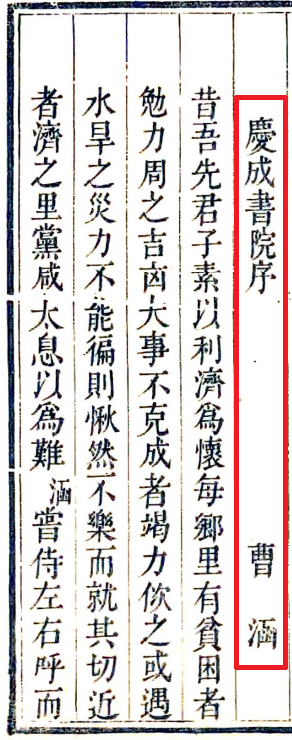 慶成書院序 曹涵
昔吾先君子素以利濟爲懷每鄉里有貧困者
勉力周之吉凶大事不克成者竭力佽之或遇
水旱之災力不能徧則愀然不樂而就其切近
者濟之里黨咸太息以爲難涵嘗侍左右呼而